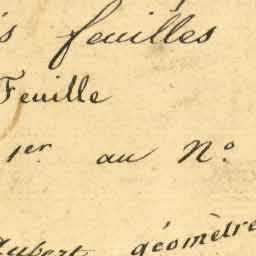 feuilles
Feuille
1er au No.
géomètre